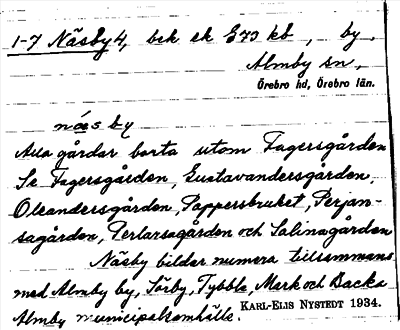 1-7 Näsby 4, bek ek E73 kb, by.
Almby sn,
Örebro hd, Örebro län.
näsby
Alla gårdar borta utom Fagersgården
Se Fagersgården, Gustavandersgården,
Oleandersgården, Pappersbruket, Perjan-
sagården, Perlarsagården och Salinagården
Näsby bildar numera tillsammans
med Almby by, Sörby, Tybble, Mark och Backa
Almby municipalsamhälle. KARL-ELIS NYSTEDT 1934.